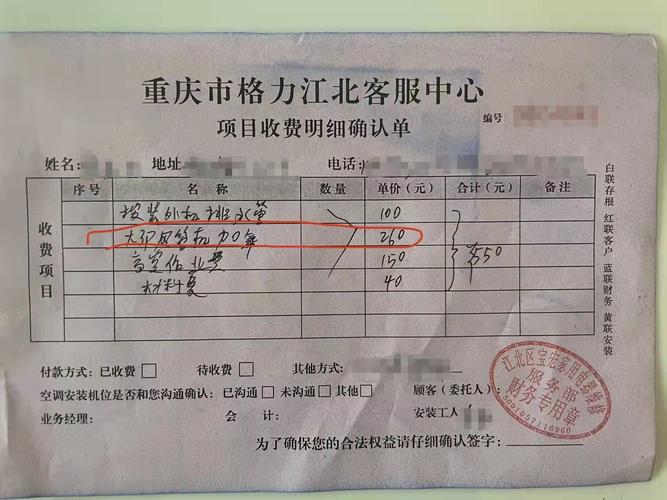 重庆市格力江北客服中心
项目收费明细确认单
编号
姓名: 地址 电话:
序号 名称 数量 单价(元) 合计(元) 备注
收费项目
按装外机排水管 100
大印风管机加氟 260
高空作业费 150
材料费 40
550
付款方式: 已收费 □ 待收费 □ 其他方式:
空调安装机位是否和您沟通确认: 已沟通 □ 未沟通 □ 其他 □ 顾客(委托人):
业务经理: 会计: 安装工人
为了确保您的合法权益请仔细确认签字:
白联存根 红联客户 蓝联财务 黄联安装
江北区宝宏家用电器维修
服务部
财务专用章
5001057118960